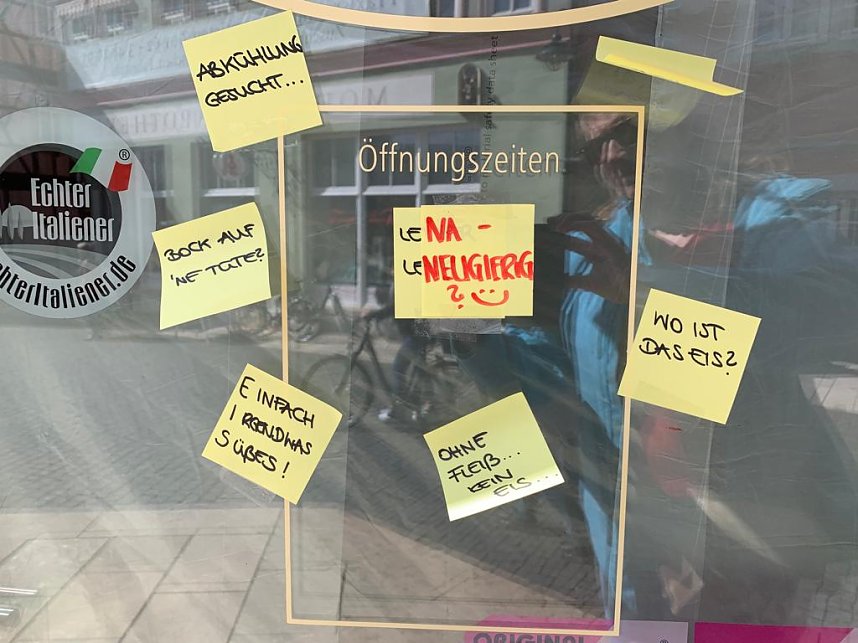 ABKÜHLUNG
GESUCHT...
Öffnungszeiten
Echter
Italiener
®
echterItaliener.de
BOCK AUF
'NE TÜTE?
LE NA -
LE NEUGIERIG
?
WO IST
DAS EIS?
EINFACH
IRGENDWAS
SÜßES!
OHNE
FLEIß...
KEIN
EIS...
safety data sheet
ORIGINAL